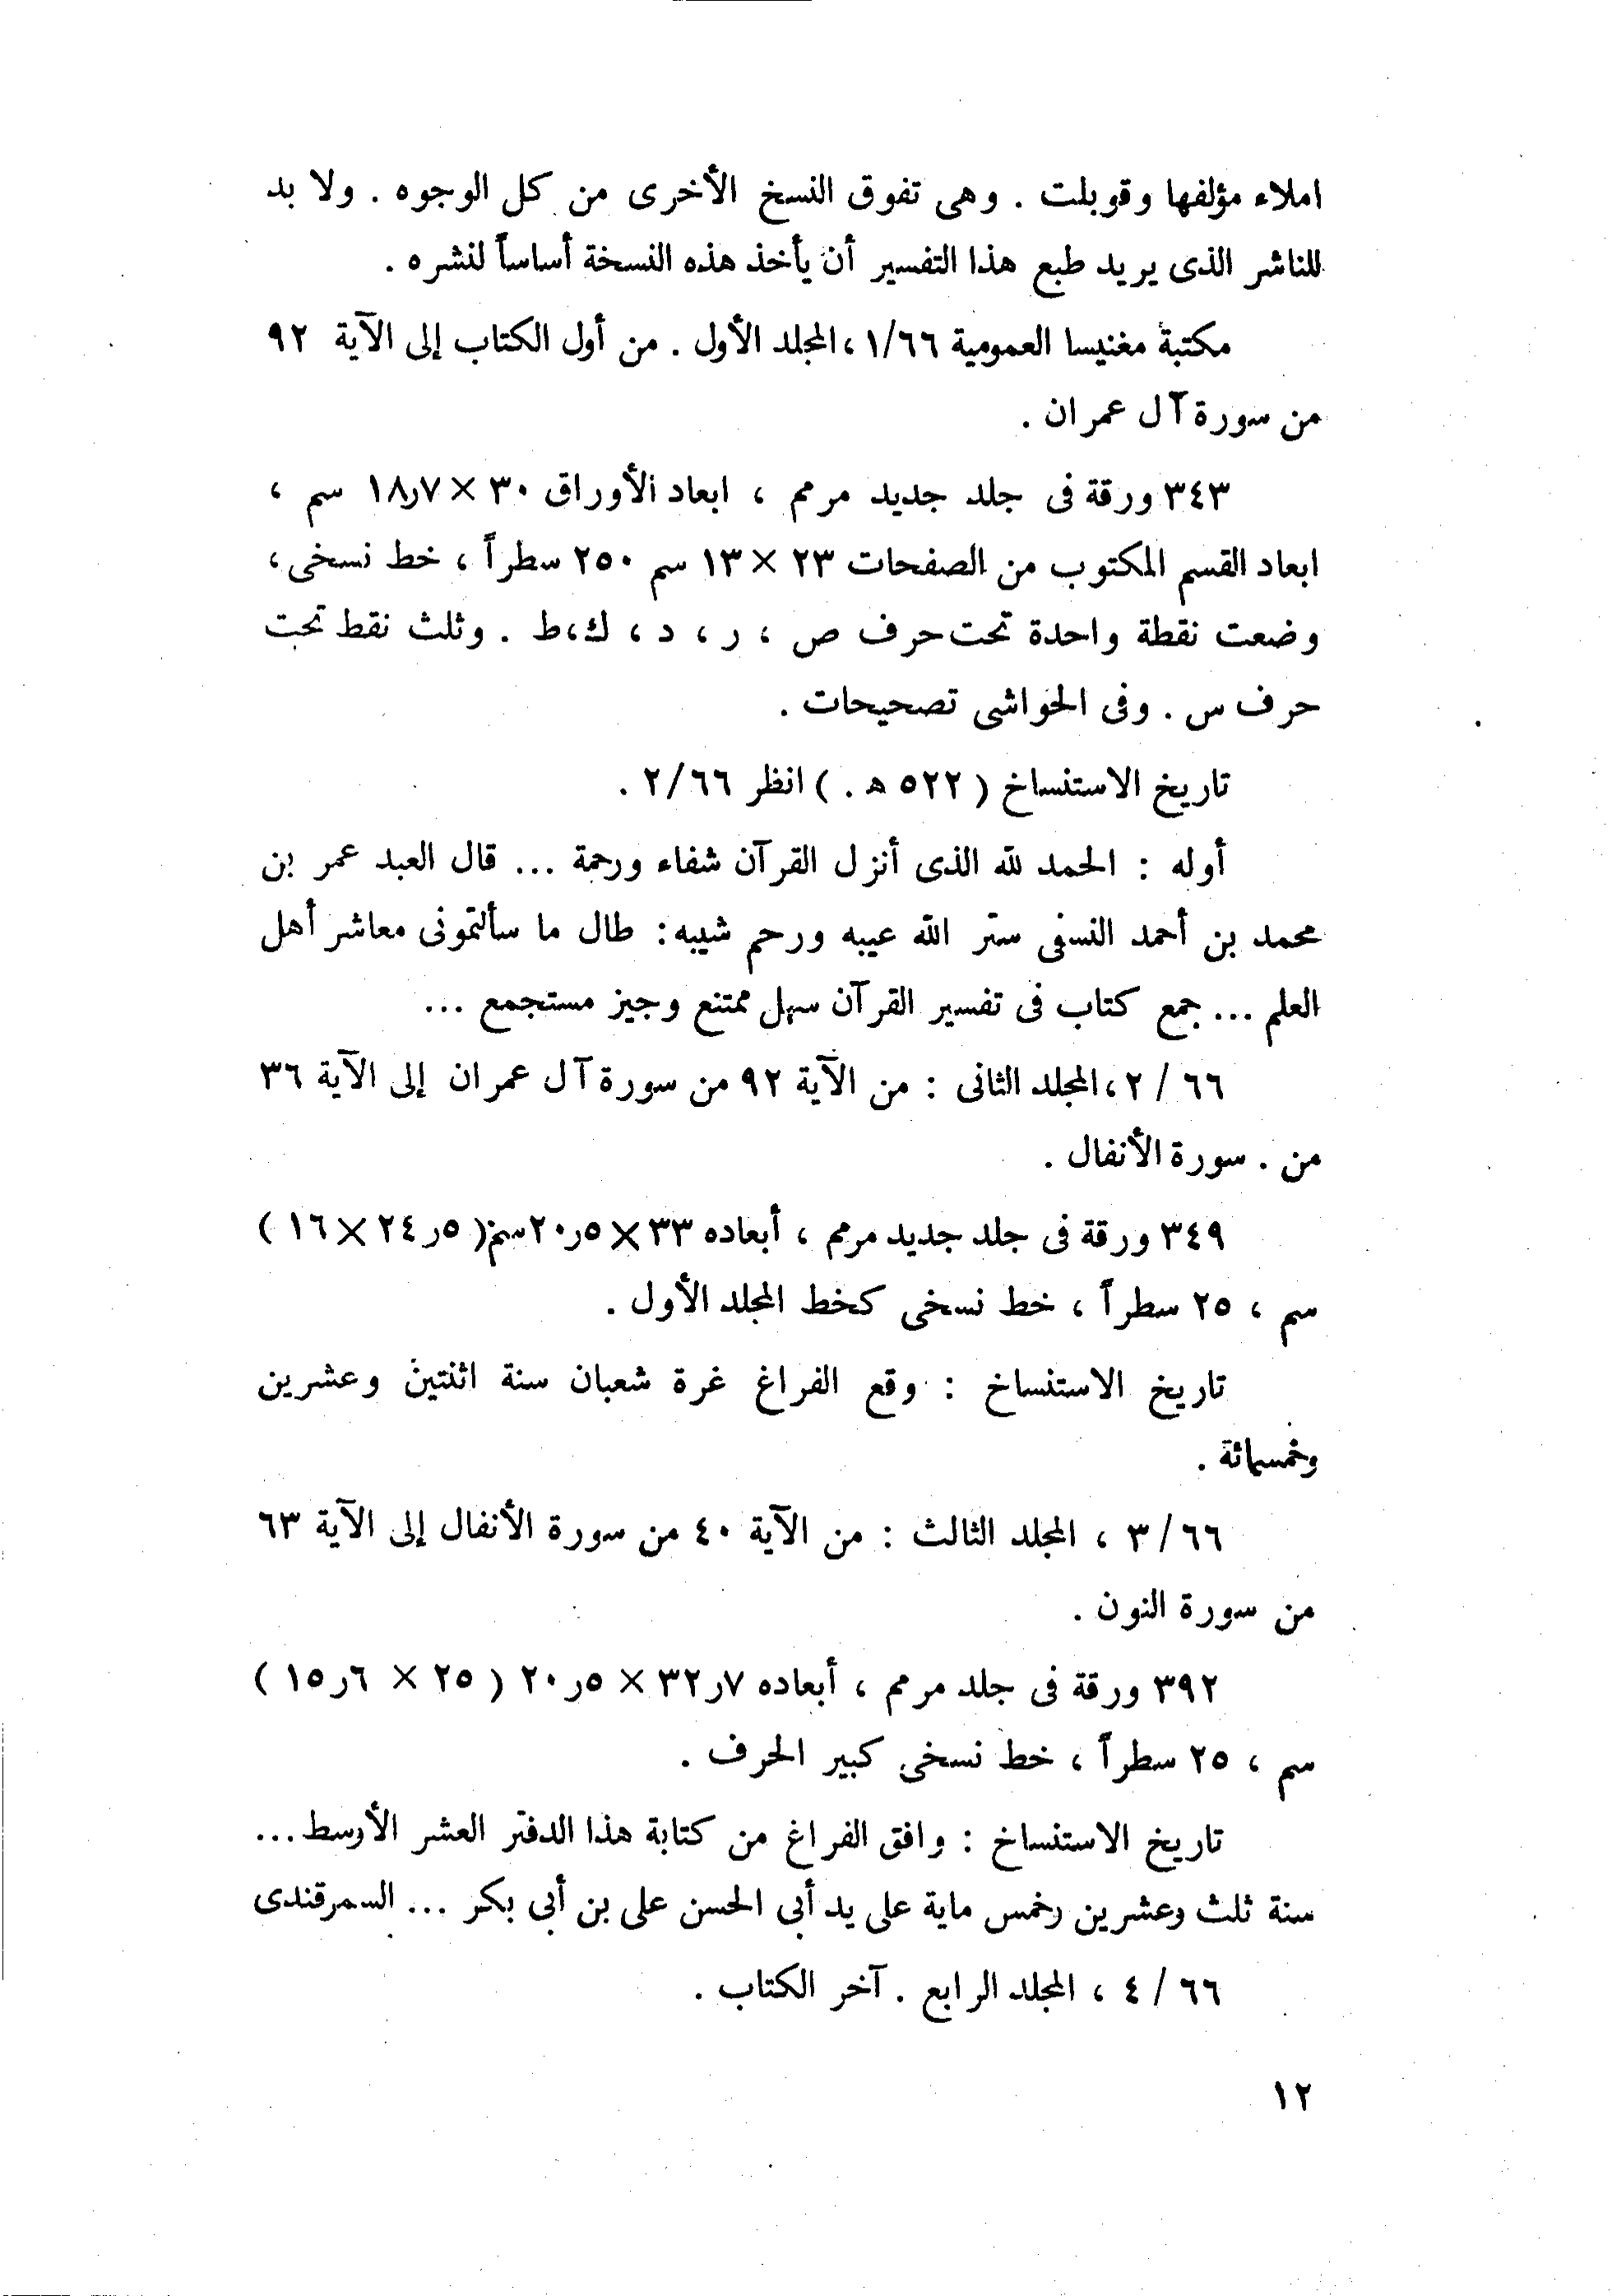 املاء مؤلفها وقوبلت . وهى تفوق النسخ الأخرى من كل الوجوه . ولا بد
للناشر الذى يريد طبع هذا التفسير أن يأخذ هذه النسخة أساساً لنشره .
مكتبة مغنيسا العمومية ١/٦٦ ، المجلد الأول . من أول الكتاب إلى الآية ٩٢
من سورة آل عمران .
٣٤٣ ورقة فى جلد جديد مرمم ، ابعاد الأوراق ٣٠ × ١٨٫٧ سم ،
ابعاد القسم المكتوب من الصفحات ٢٣ × ١٣ سم ٢٥٠ سطراً ، خط نسخى ،
وضعت نقطة واحدة تحت حرف ص ، ر ، د ، ك ، ط . وثلث نقط تحت
حرف س . وفى الحواشى تصحيحات .
تاريخ الاستنساخ ( ٥٢٢ ه . ) انظر ٢/٦٦ .
أوله : الحمد لله الذى أنزل القرآن شفاء ورحمة ... قال العبد عمر بن
محمد بن أحمد النسفى ستر الله عيبه ورحم شيبه : طال ما سألتمونى معاشر أهل
العلم ... جمع كتاب فى تفسير القرآن سهل ممتنع وجيز مستجمع ...
٦٦ / ٢ ، المجلد الثانى : من الآية ٩٢ من سورة آل عمران إلى الآية ٣٦
من . سورة الأنفال .
٣٤٩ ورقة فى جلد جديد مرمم ، أبعاده ٣٣ × ٥ر٢٠ سم ( ٥ر٢٤ × ١٦ )
سم ، ٢٥ سطراً ، خط نسخى كخط المجلد الأول .
تاريخ الاستنساخ : وقع الفراغ غرة شعبان سنة اثنتين وعشرين
وخمسمائة .
٦٦ / ٣ ، المجلد الثالث : من الآية ٤٠ من سورة الأنفال إلى الآية ٦٣
من سورة النون .
٣٩٢ ورقة فى جلد مرمم ، أبعاده ٧ر٣٢ × ٥ر٢٠ ( ٢٥ × ٦ر١٥ )
سم ، ٢٥ سطراً ، خط نسخى كبير الحرف .
تاريخ الاستنساخ : وافق الفراغ من كتابة هذا الدفتر العشر الأوسط ...
سنة ثلث وعشرين وخمس ماية على يد أبى الحسن على بن أبى بكر ... السمرقندى
٦٦ / ٤ ، المجلد الرابع . آخر الكتاب .
١٢